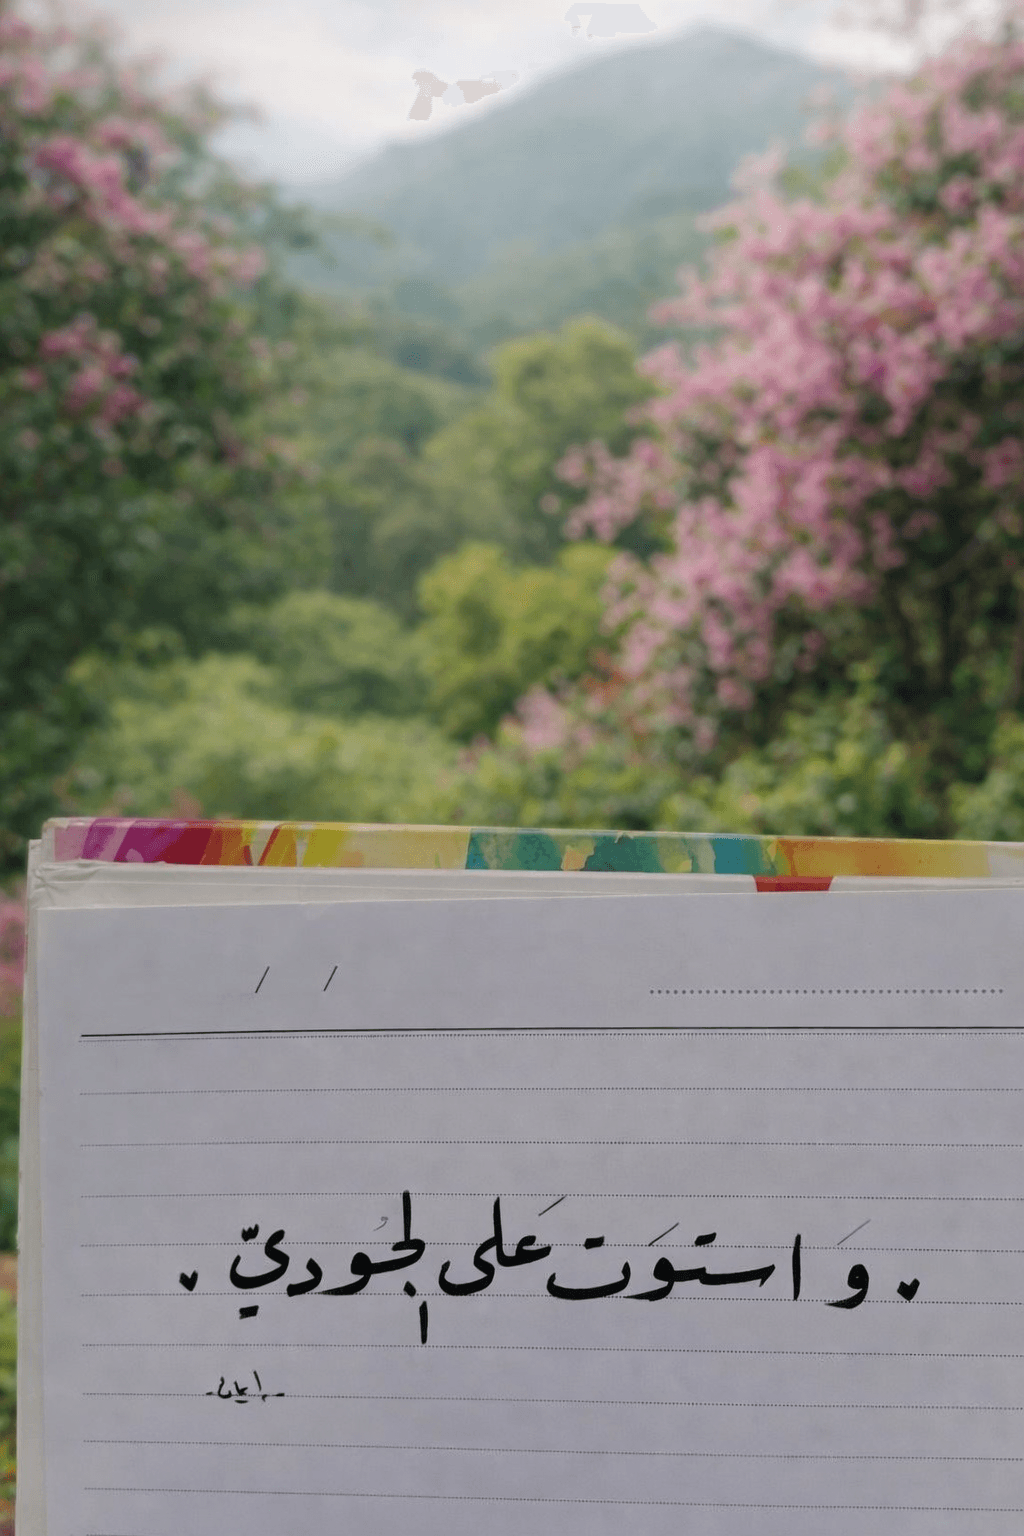 / /
وَ استوَت عَلى الجُوديّ
- إيمان -